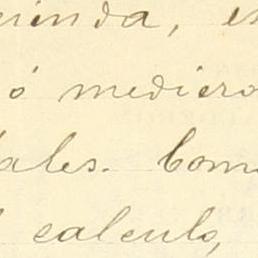 rienda, e
ó mediero
tales. Com
l calculo,